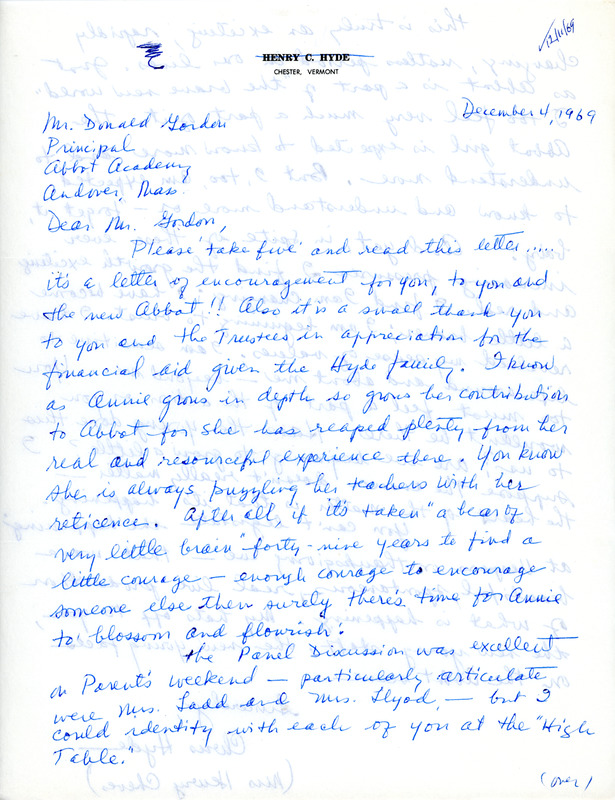 12/11/69
HENRY C. HYDE
CHESTER, VERMONT
December 4, 1969
Mr. Donald Gordon
Principal
Abbot Academy
Andover, Mass.
Dear Mr. Gordon,
Please 'take five' and read this letter.....
it's a letter of encouragement for you, to you and
the new Abbot!! Also it is a small thank you
to you and the Trustees in appreciation for the
financial aid given the Hyde family. I know
as Annie grows in depth so grows her contribution
to Abbot for she has reaped plenty from her
real and resourceful experience there. You know
she is always puzzling her teachers with her
reticence. After all, if it's taken "a bear of
very little brain" forty-nine years to find a
little courage – enough courage to encourage
someone else then surely there's time for Annie
to blossom and flourish!
The Panel Discussion was excellent
on Parent's weekend – particularly articulate
were Mrs. Ladd and Mrs. Llyod, – but I
could identity with each of you at the "High
Table."
(over)